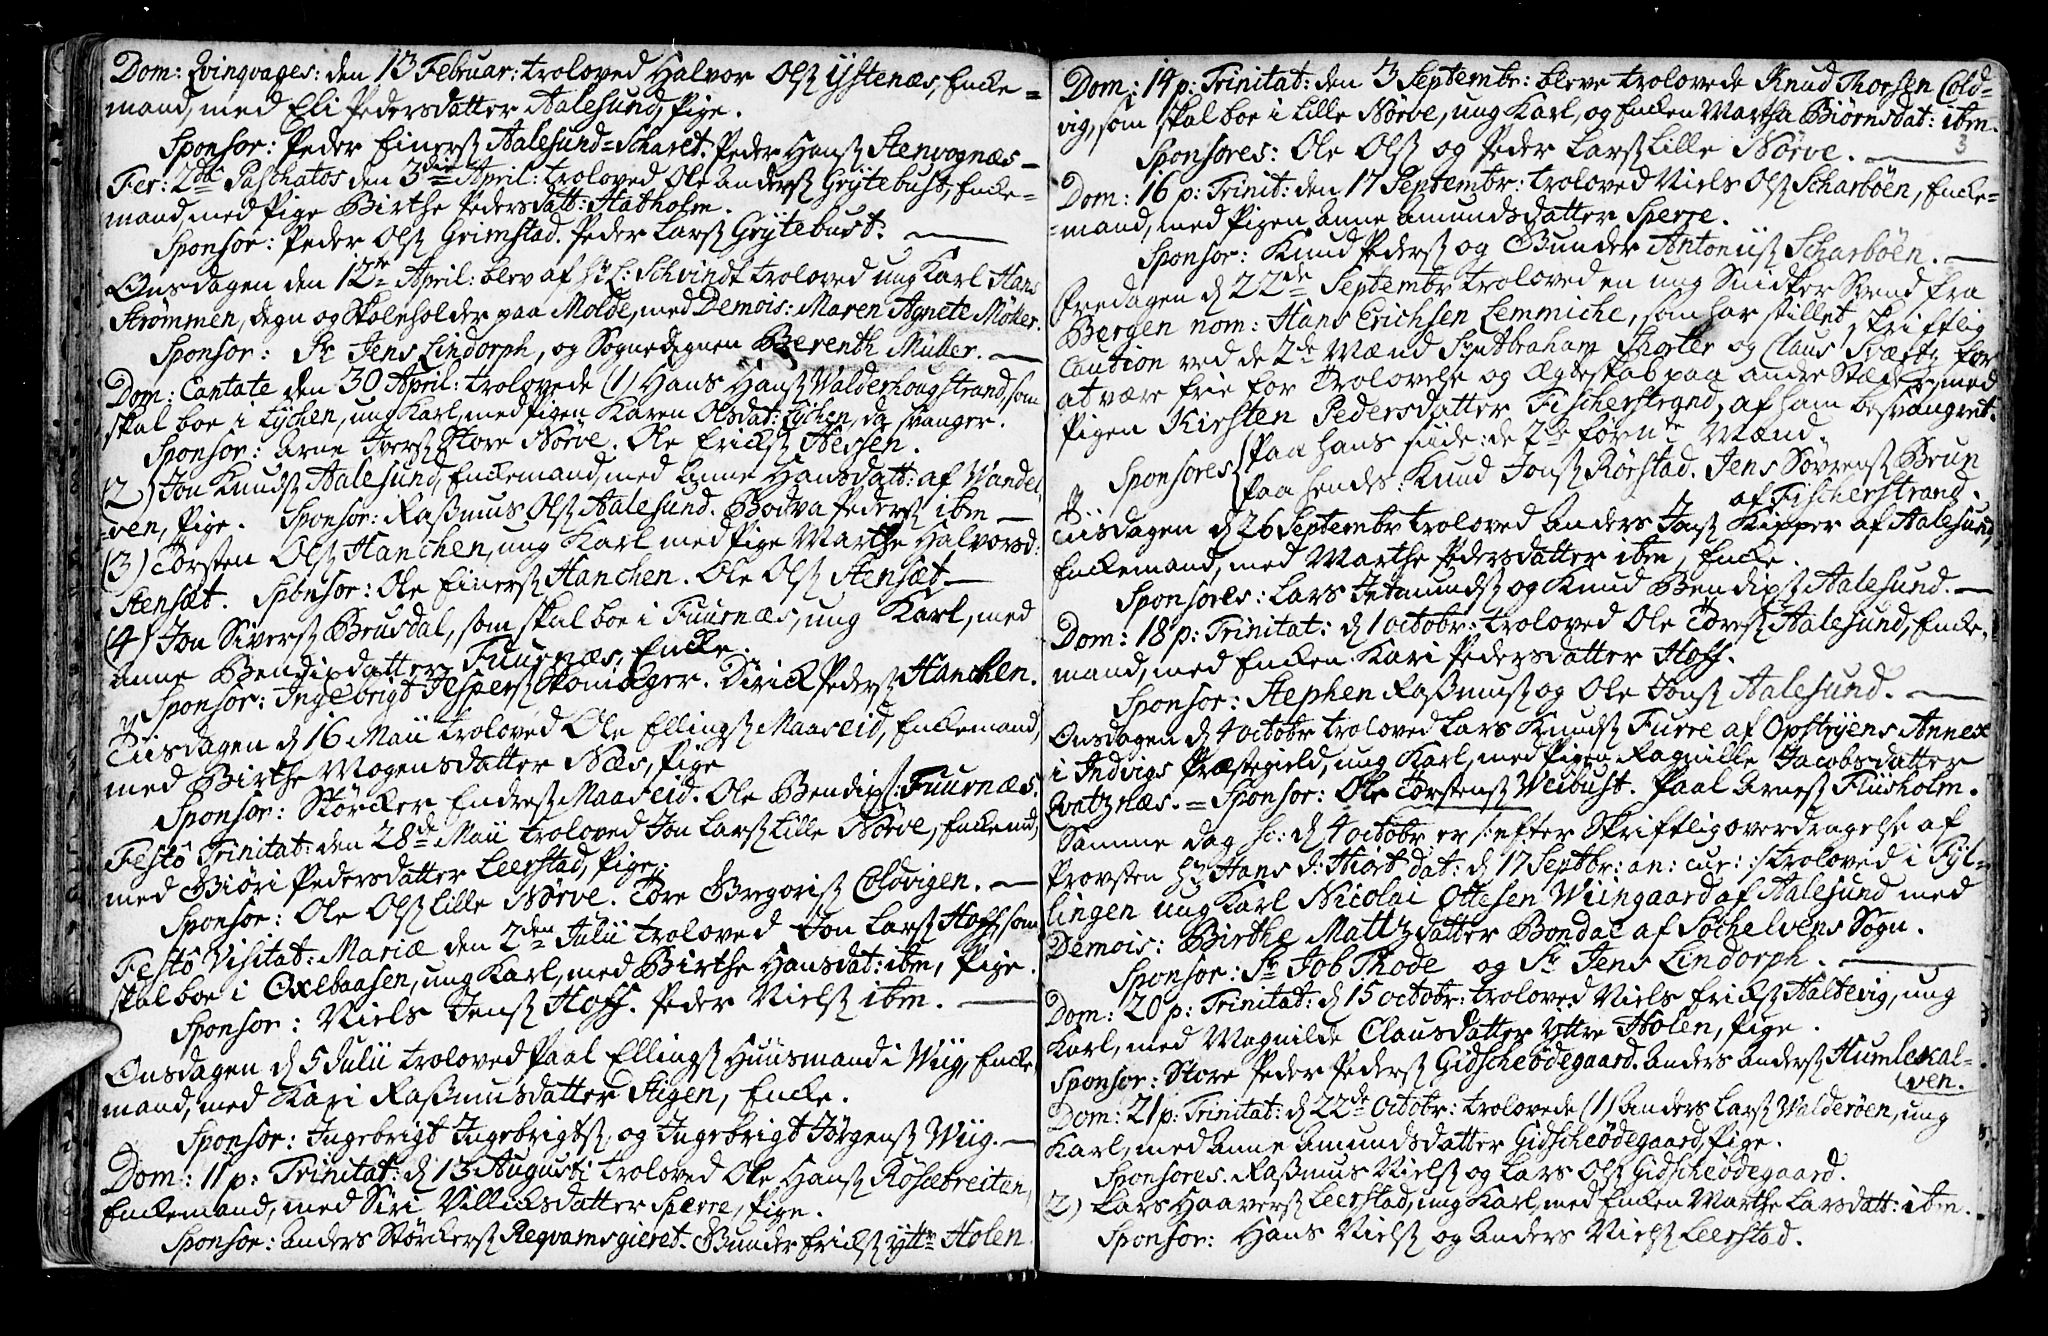 Dom: Qvinqvages: den 13 Februar: troloved Halvor Olsß Ÿstenæs, Encke=
mand, med Eli Pedersdatter Aalesund, Pige.
Sponsor: Peder Einersß Aalesund=Scharet. Peder Hansß Stenvognæs —
Fer: 2dæ Paschatos den 3die April: troloved Ole Andersß Grÿtebust, Encke=
mand, med Pige Birthe Pedersdatt: Hatholm.
Sponsor: Peder Olsß Grimstad. Peder Larsß Grÿtebust. —
Onsdagen den 12te April: blev af Hr: C: Schvindt troloved ung Karl Hans
Strømmen, Degn og Skoleholder paa Molde, med Demois: Maren Agnete Möller.
Sponsor: Sr Jens Lindorph, og Sognedegnen Berenth Müller. —
Dom: Cantate den 30 April: trolovede (1) Hans Hansß Valderhougstrand, som
skal boe i Lÿchen, ung Karl, med Pigen Karen Olsdat: Lÿchen, da svanger.
Sponsor: Arne Iversß Store Nörve. Ole Ericksß Hessen.
(2) Jon Knudsß Aalesund, Enckemand, med Anne Hansdatt: af Wandel
=ven, Pige. Sponsor: Rasmus Olsß Aalesund. Bodva Pedersß ibm —
(3) Torsten Olsß Hanchen, ung Karl med Pige Marthe Halvorsd:
Stensæt. Sponsor: Ole Einersß Hanchen. Ole Olsß Stensæt. —
(4) Jon Siversß Brusdal, som skal boe i Fuurnæs, ung Karl, med
Anne Bendixdatter Fuurnæs, Encke.
Sponsor: Ingebrigt Jespersß Skomager. Dirick Pedersß Hanchen.
Tiisdagen d 16 Maii troloved Ole Ellingsß Maaseid, Enckemand,
med Birthe Mogensdatter Næs, Pige
Sponsor: Störcker Endresß Maaseid. Ole Bendixß: Fuurnæs.
Festô Trinitat: den 28de Maii troloved Jon Larsß Lille Nörve, Enckemd,
med Giöri Pedersdatter Leerstad, Pige;
Sponsor: Ole Olsß Lille Nörve. Tore Gregorisß Coldvigen. —
Festô Visitat: Mariæ den 2den Julii troloved Jon Larsß Hoff, som
skal boe i Oxlbaasen, ung Karl, med Birthe Hansdat: ibm, Pige.
Sponsor: Niels Jensß Hoff. Peder Nielsß ibm. —
Onsdagen d 5 Julii troloved Paal Ellingsß Huusmand i Wiig, Encke
mand, med Kari Rasmusdatter Stigen, Encke.
Sponsor: Ingebrigt Ingebrigtsß, og Ingebrigt Jörgensß Wiig. —
Dom: 11 p: Trinitat: d 13 Augusti troloved Ole Hansß Rösæbreiten,
Enckemand, med Siri Villicksdatter Spærre, Pige.
Sponsor: Anders Störckersß Reqvamsgieret. Gunder Ericksß Ÿttre Holen.
Dom: 14 p: Trinitat: den 3 Septembr: bleve trolovede Knud Thorsen Cold=
vig, som skal boe i Lille Nörve, ung Karl, og Encken Martha Biörnsdat: ibm.
3
Sponsores: Ole Olsß og Peder Larsß Lille Nörve. —
Dom: 16 p: Trinit: den 17 Septembr: troloved Niels Olsß Scharböen, Encke=
=mand, med Pigen Anne Amundsdatter Sperre.
Sponsor: Knud Pedersß og Gunder Antoniisß Scharböen. —
Fredagen d 22de Septembr troloved en ung Snidker Svend fra
Bergen nom: Hans Erichsen Lemmiche, som har stillet skriftlig
Caution ved de 2de Mænd Abraham og Claus for
at være frie for Trolovelse og Ægteskab paa andre Stæder, med
Pigen Kirsten Pedersdatter Fischerstrand, af ham besvangret.
Sponsores Paa hans side: de 2de förnte Mænd.
Paa hendes: Knud Jonsß Rörstad. Jens Sörrensß Brun
af Fischerstrand.
Tiisdagen d 26 Septembr troloved Anders Jonsß Kipper af Aalesund,
Enckemand, med Marthe Pedersdatter ibm, Encke.
Sponsores: Lars Jetmundsß og Knud Bendixß Aalesund. —
Dom: 18 p: Trinitat: d 1 Octobr: troloved Ole Torsß Aalesund, Encke=
mand, med Encken Kari Pedersdatter Hoff.
Sponsor: Stephen Rasmusß og Ole Jonsß Aalesund. —
Onsdagen d 4 Octobr troloved Lars Knudsß Furre af Opstrÿens Annex
i Indvigs Præstegield, ung Karl, med Pigen Ragnille Jacobsdatter
Qvatznæs. = Sponsor: Ole Torstensß Weibust. Paal Arnesß Fliisholm.
Samme dag sc: d 4 Octobr er /: efter Skriftlig overdragelse af
Provsten Hr Hans J: Hiort dat: d 17 Septbr: an: cur: :/ troloved i Fÿl=
lingen ung Karl Nicolai Ottesen Wiingaard af Aalesund med
Demois: Birthe Mattzdatter Bondal af Söchelvens Sogn.
Sponsor: Sr Job Thode og Sr Jens Lindorph. —
Dom: 20 p: Trinitat: d 15 Octobr: troloved Niels Ericksß Aaltevig, ung
Karl, med Magnilde Clausdatter Ÿttre Holen, Pige.
Sponsor: Store Peder Pedersß Gidscheödegaard. Anders Andersß Humlescal=
ven.
Dom: 21 p: Trinitat: d 22de Octobr: trolovede (1) Anders Larsß Valderöen, ung
Karl, med Anne Amundsdatter Gidscheödegaard, Pige.
Sponsores. Rasmus Nielsß og Lars Olsß Gidscheödegaard.
2) Lars Haaversß Leerstad, ung Karl, med Encken Marthe Larsdatt: ibm.
Sponsor: Hans Nielsß og Anders Nielsß Leerstad.